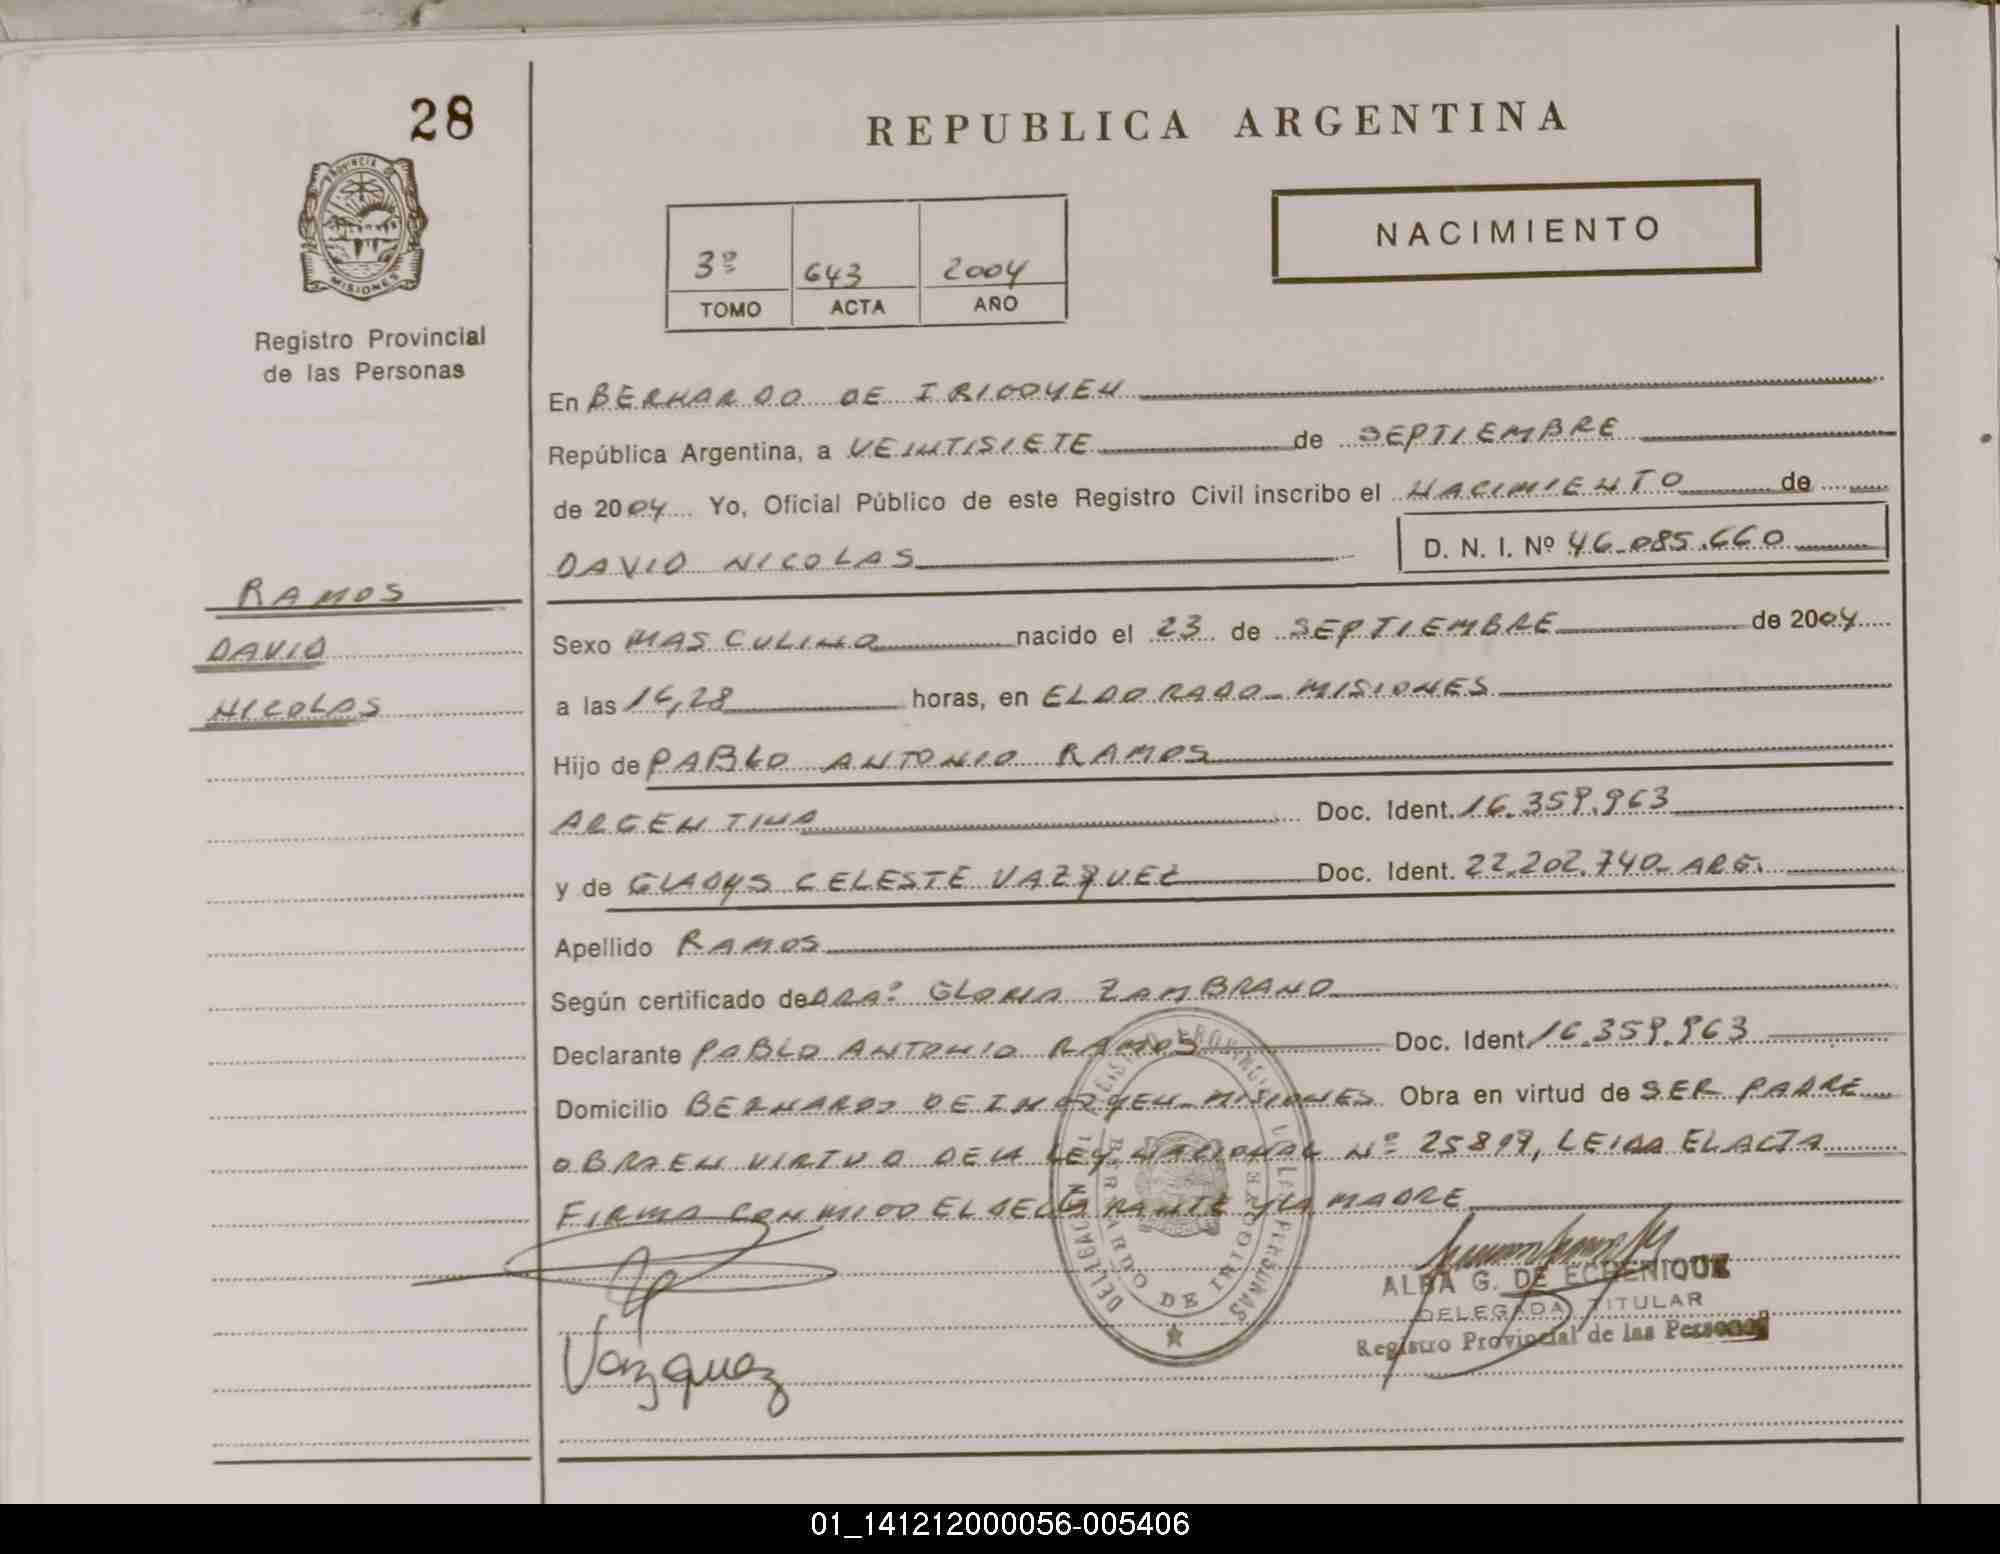 28
REPUBLICA ARGENTINA
PROVINCIA DE
MISIONES
Registro Provincial
de las Personas
NACIMIENTO
3º 643 2004
TOMO ACTA AÑO
En BERNARDO DE IRIGOYEN
República Argentina, a VEINTISIETE de SEPTIEMBRE
de 2004 Yo, Oficial Público de este Registro Civil inscribo el NACIMIENTO de
DAVID NICOLAS D. N. I. Nº 46.085.660
RAMOS
DAVID
NICOLAS
Sexo MASCULINO nacido el 23 de SEPTIEMBRE de 2004
a las 16,28 horas, en ELDORADO-MISIONES
Hijo de PABLO ANTONIO RAMOS
ARGENTINA Doc. Ident. 16.359.963
y de GLADYS CELESTE VAZQUEZ Doc. Ident. 22.202.740- ARG.
Apellido RAMOS
Según certificado de DRAº GLORIA ZAMBRANO
Declarante PABLO ANTONIO RAMOS Doc. Ident. 16.359.963
Domicilio BERNARDO DE IRIGOYEN-MISIONES Obra en virtud de SER PADRE
OBRA EN VIRTUD DE LA LEY NACIONAL Nº 25819, LEIDA EL ACTA
FIRMA CONMIGO EL DECLARANTE Y LA MADRE
BERNARDO DE IRIGOYEN
ALBA G. DE ECHENIQUE
DELEGADA TITULAR
Registro Provincial de las Personas
Vazquez
01_141212000056-005406